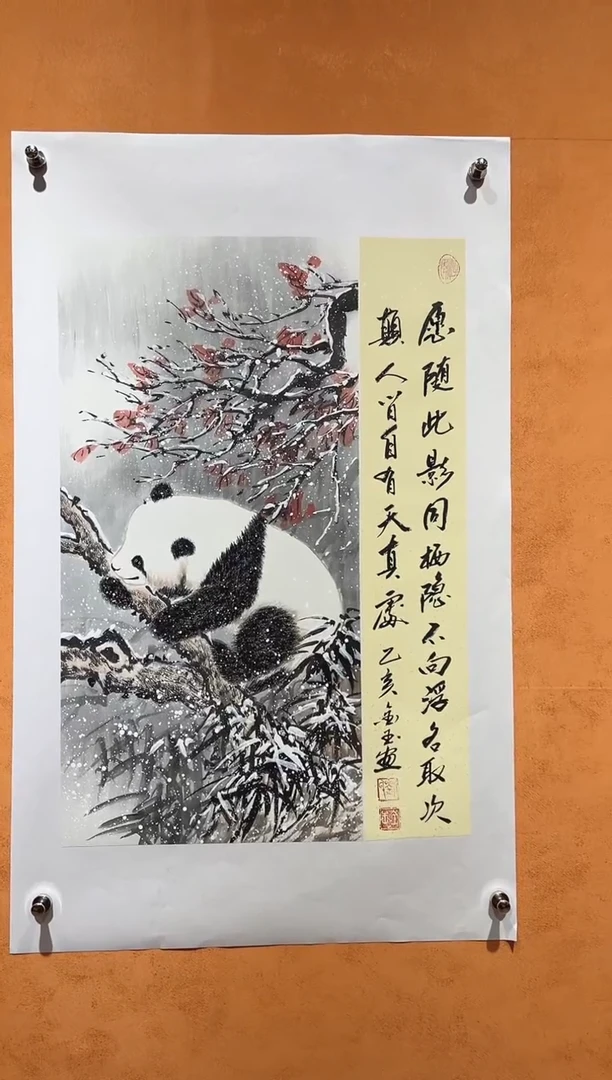 愿随此影同栖隐不向浮名取次
颠人皆自有天真处 乙亥 金玉画